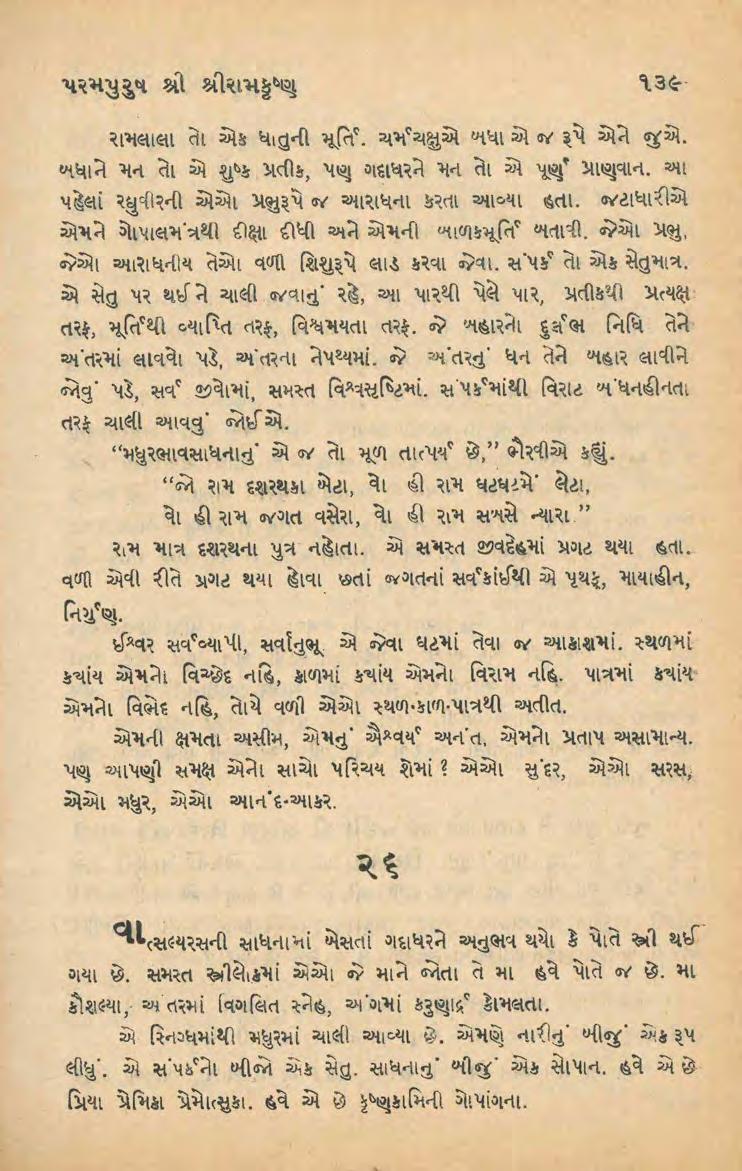 પરમપુરુષ શ્રી શ્રીરામકૃષ્ણ ૧૩૯
રામલાલા તો એક ધાતુની મૂર્તિ. ચર્મચક્ષુએ બધા એ જ રૂપે એને જુએ.
બધાને મન તો એ શુષ્ક પ્રતીક, પણ ગદાધરને મન તો એ પૂર્ણ પ્રાણવાન. આ
પહેલાં રઘુવીરની એઓ પ્રભુરૂપે જ આરાધના કરતા આવ્યા હતા. જટાધારીએ
એમને ગોપાલમંત્રથી દીક્ષા દીધી અને એમની બાળકમૂર્તિ બતાવી. જેઓ પ્રભુ,
જેઓ આરાધનીય તેઓ વળી શિશુરૂપે લાડ કરવા જેવા. સંપર્ક તો એક સેતુમાત્ર.
એ સેતુ પર થઈ ને ચાલી જવાનું રહે, આ પારથી પેલે પાર, પ્રતીકથી પ્રત્યક્ષ
તરફ, મૂર્તિથી વ્યાપ્તિ તરફ, વિશ્વમયતા તરફ. જે બહારનો દુર્લભ નિધિ તેને
અંતરમાં લાવવો પડે, અંતરના નેપથ્યમાં. જે અંતરનું ધન તેને બહાર લાવીને
જોવું પડે, સર્વ જીવોમાં, સમસ્ત વિશ્વસૃષ્ટિમાં. સંપર્કમાંથી વિરાટ બંધનહીનતા
તરફ ચાલી આવવું જોઈએ.
“મધુરભાવસાધનાનું એ જ તો મૂળ તાત્પર્ય છે,” ભૈરવીએ કહ્યું.
“જો રામ દશરથકા બેટા, વો હી રામ ઘટઘટમેં લેટા,
વો હી રામ જગત વસેરા, વો હી રામ સબસે ન્યારા.”
રામ માત્ર દશરથના પુત્ર નહોતા. એ સમસ્ત જીવદેહમાં પ્રગટ થયા હતા.
વળી એવી રીતે પ્રગટ થયા હોવા છતાં જગતનાં સર્વકાંઈથી એ પૃથક્, માયાહીન,
નિર્ગુણ.
ઈશ્વર સર્વવ્યાપી, સર્વાનુભૂ. એ જેવા ઘટમાં તેવા જ આકાશમાં. સ્થળમાં
કયાંય એમનો વિચ્છેદ નહિ, કાળમાં કયાંય એમનો વિરામ નહિ. પાત્રમાં કયાંય
એમનો વિભેદ નહિ, તોયે વળી એઓ સ્થળ-કાળ-પાત્રથી અતીત.
એમની ક્ષમતા અસીમ, એમનું ઐશ્વર્ય અનંત, એમનો પ્રતાપ અસામાન્ય.
પણ આપણી સમક્ષ એનો સાચો પરિચય શેમાં ? એઓ સુંદર, એઓ સરસ,
એઓ મધુર, એઓ આનંદ-આકર.
૨૬
વાત્સલ્યરસની સાધનામાં બેસતાં ગદાધરને અનુભવ થયો કે પોતે સ્ત્રી થઈ
ગયા છે. સમસ્ત સ્ત્રીલોકમાં એઓ જે માને જોતા તે મા હવે પોતે જ છે. મા
કૌશલ્યા, અંતરમાં વિગલિત સ્નેહ, અંગમાં કરુણાર્દ્ર કોમલતા.
એ સ્નિગ્ધમાંથી મધુરમાં ચાલી આવ્યા છે. એમણે નારીનું બીજું એક રૂપ
લીધું. એ સંપર્કનો બીજો એક સેતુ. સાધનાનું બીજું એક સોપાન. હવે એ છે
પ્રિયા પ્રેમિકા પ્રેમોત્સુકા. હવે એ છે કૃષ્ણકામિની ગોપાંગના.